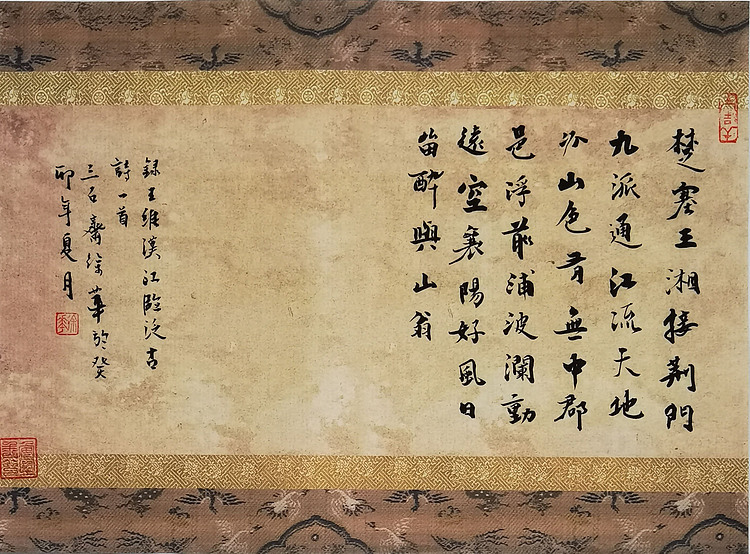 楚塞三湘接荆門
九派通江流天地
外山色有無中郡
邑浮前浦波瀾動
遠空襄陽好風日
留醉與山翁
録王維漢江臨泛古
詩一首
三石齋徐華於癸
卯年夏月